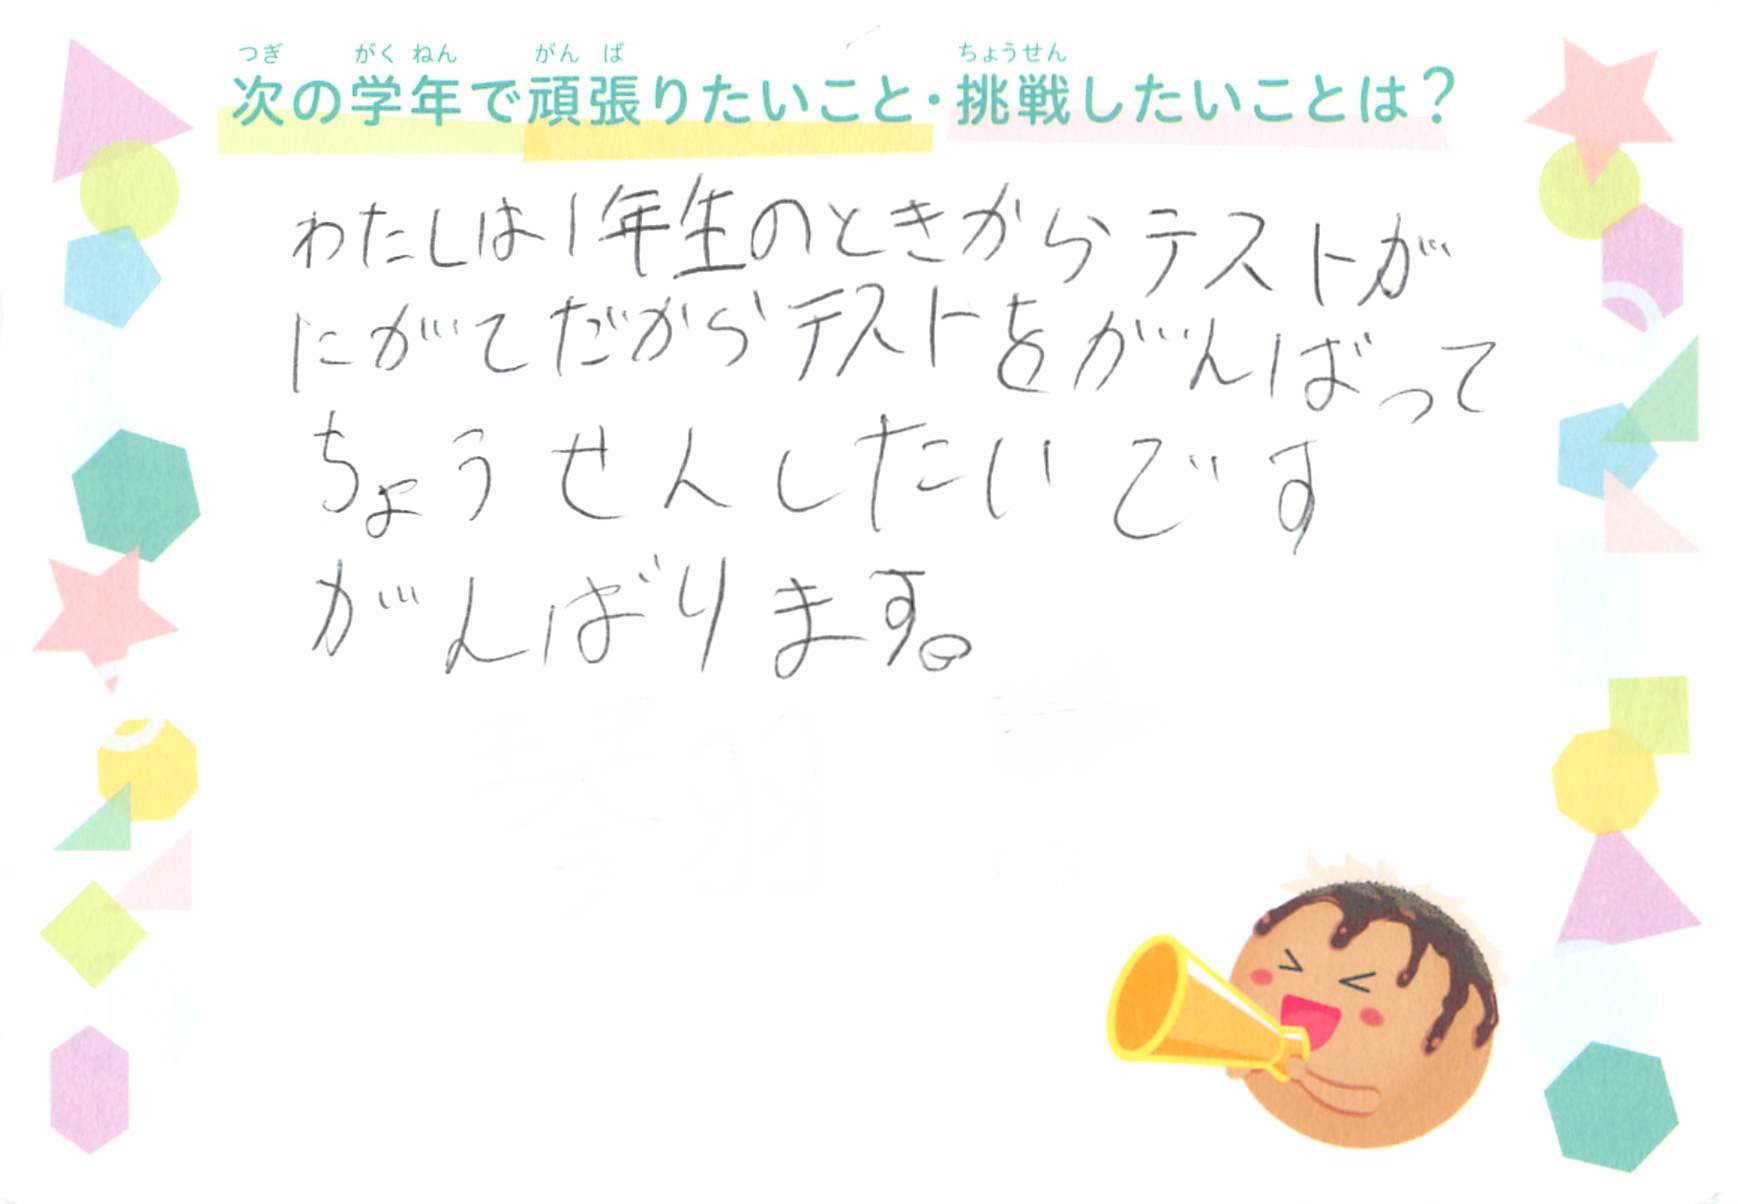 つぎ がくねん がんば ちょうせん
次の学年で頑張りたいこと・挑戦したいことは？
わたしは1年生のときからテストが
にがてだからテストをがんばって
ちょうせんしたいです
がんばります。